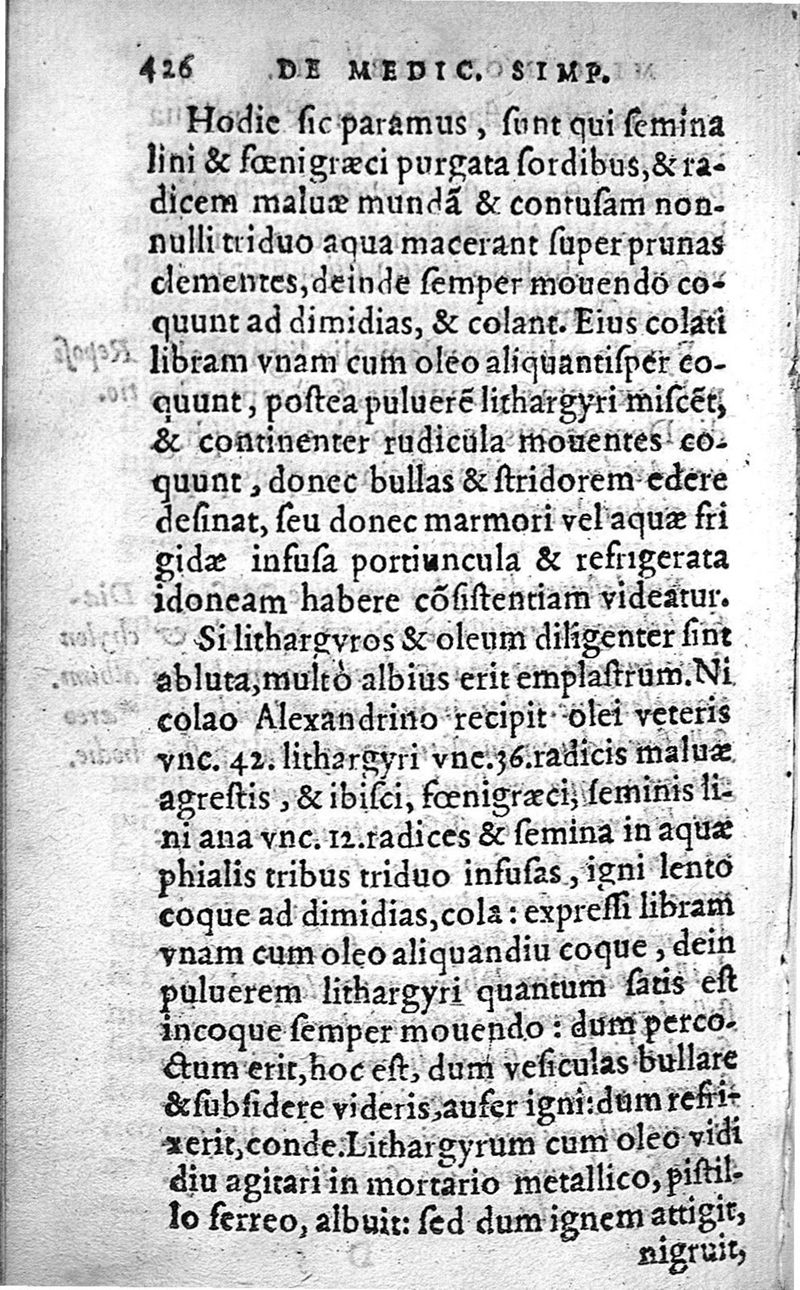 426 DE MEDIC. SIMP.
Hodie ſic paramus, ſunt qui ſemina
lini & fœnigræci purgata ſordibus, & ra-
dicem maluæ mundã & contuſam non-
nulli triduo aqua macerant ſuper prunas
clementes, deinde ſemper mouendo co-
quunt ad dimidias, & colant. Eius colati
libram vnam cum oleo aliquantiſper co-
quunt, poſtea puluerẽ lithargyri miſcẽt,
& continenter rudicula mouentes co-
quunt, donec bullas & ſtridorem edere
deſinat, ſeu donec marmori vel aquæ fri
gidæ infuſa portiuncula & refrigerata
idoneam habere cõſiſtentiam videatur.
Si lithargyros & oleum diligenter ſint
abluta, multò albius erit emplaſtrum. Ni
colao Alexandrino recipit olei veteris
vnc. 42. lithargyri vnc. 36. radicis maluæ
agreſtis, & ibiſci, fœnigræci, ſeminis li-
ni ana vnc. 12. radices & ſemina in aquæ
phialis tribus triduo infuſas, igni lento
coque ad dimidias, cola: expreſſi libram
vnam cum oleo aliquandiu coque, dein
puluerem lithargyri quantum ſatis eſt
incoque ſemper mouendo: dum perco-
ctum erit, hoc eſt, dum veſiculas bullare
& ſubſidere videris, aufer igni: dum refri-
xerit, conde. Lithargyrum cum oleo vidi
diu agitari in mortario metallico, piſtil-
lo ferreo, albuit: ſed dum ignem attigit,
nigruit,